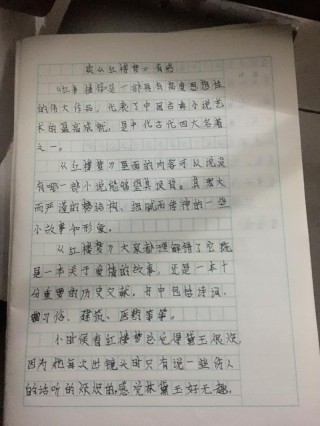 读《红楼梦》有感
《红楼梦》是一部具有高度思想性
的伟大作品，代表了中国古典小说艺
术的最高成就，是中 古代四大名著
之一。
从《红楼梦》里面的内容可以说没
有哪一部小说能够望其项背。其宏大
而严谨的 结构、细腻而传神的一些
小故事和形象。
从《红楼梦》大家都理解错了它既
是一本关于爱情的故事，还是一本十
分重要的历史文献。书中包括诗词，
曲习俗、建筑、医药等等。
小时候看红楼梦总觉得黛玉很烦，
因为她每次出镜头时只有说一些伤人
的话听的烦烦的，感觉林黛玉好无趣，